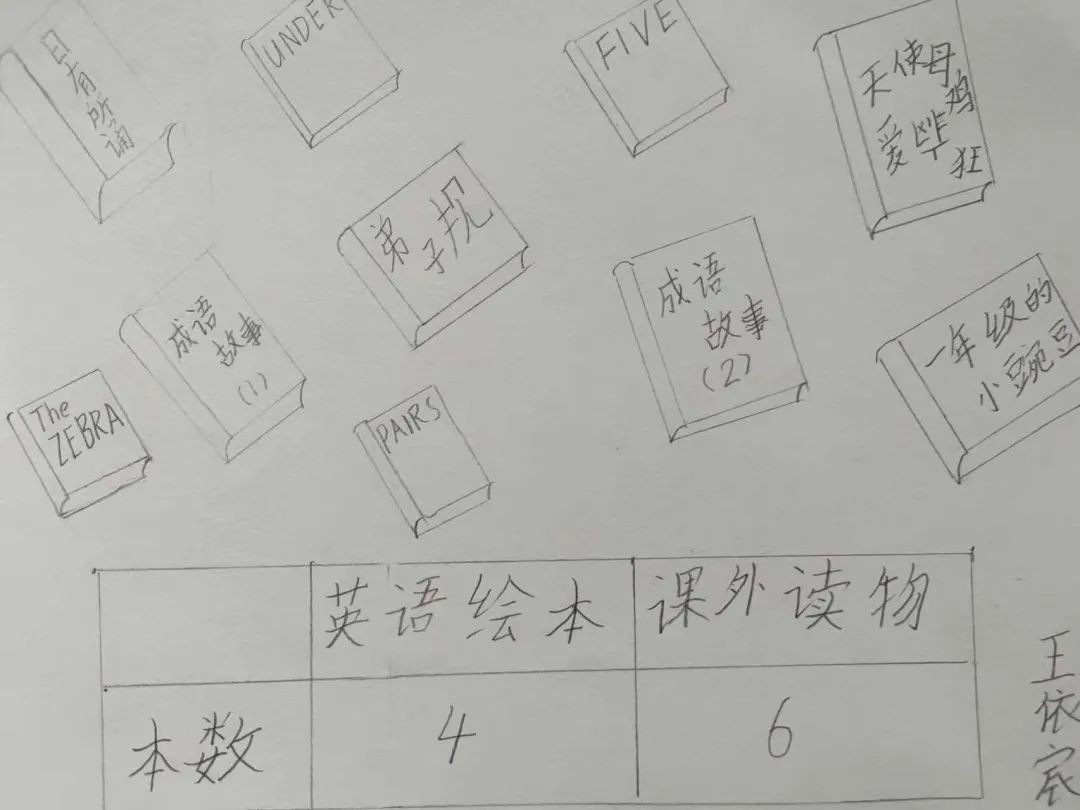 日有所诵
UNDER
FIVE
天使母鸡
爱
狂
弟子规
成语
故事
(1)
成语
故事
(2)
一年级的
小豌豆
The
ZEBRA
PAIRS
英语绘本
课外读物
本数
4
6
王依宸